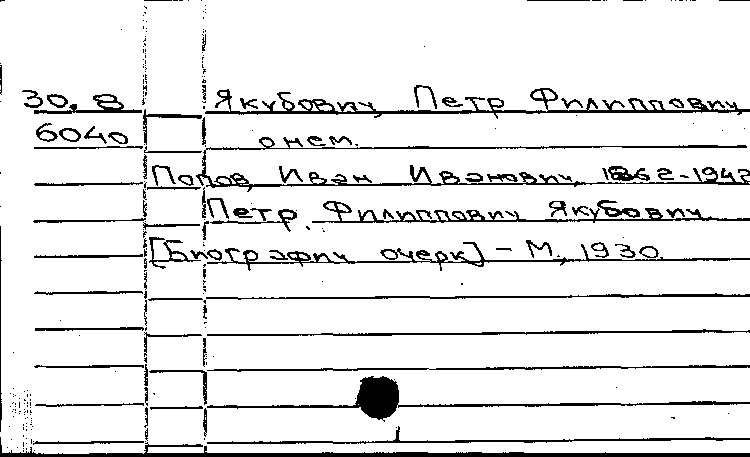 30.8 Якубович, Петр Филиппович
6040 о нем.
Попов, Иван Иванович, 1862-1942
Петр Филиппович Якубович.
[Биографич очерк] - М., 1930.